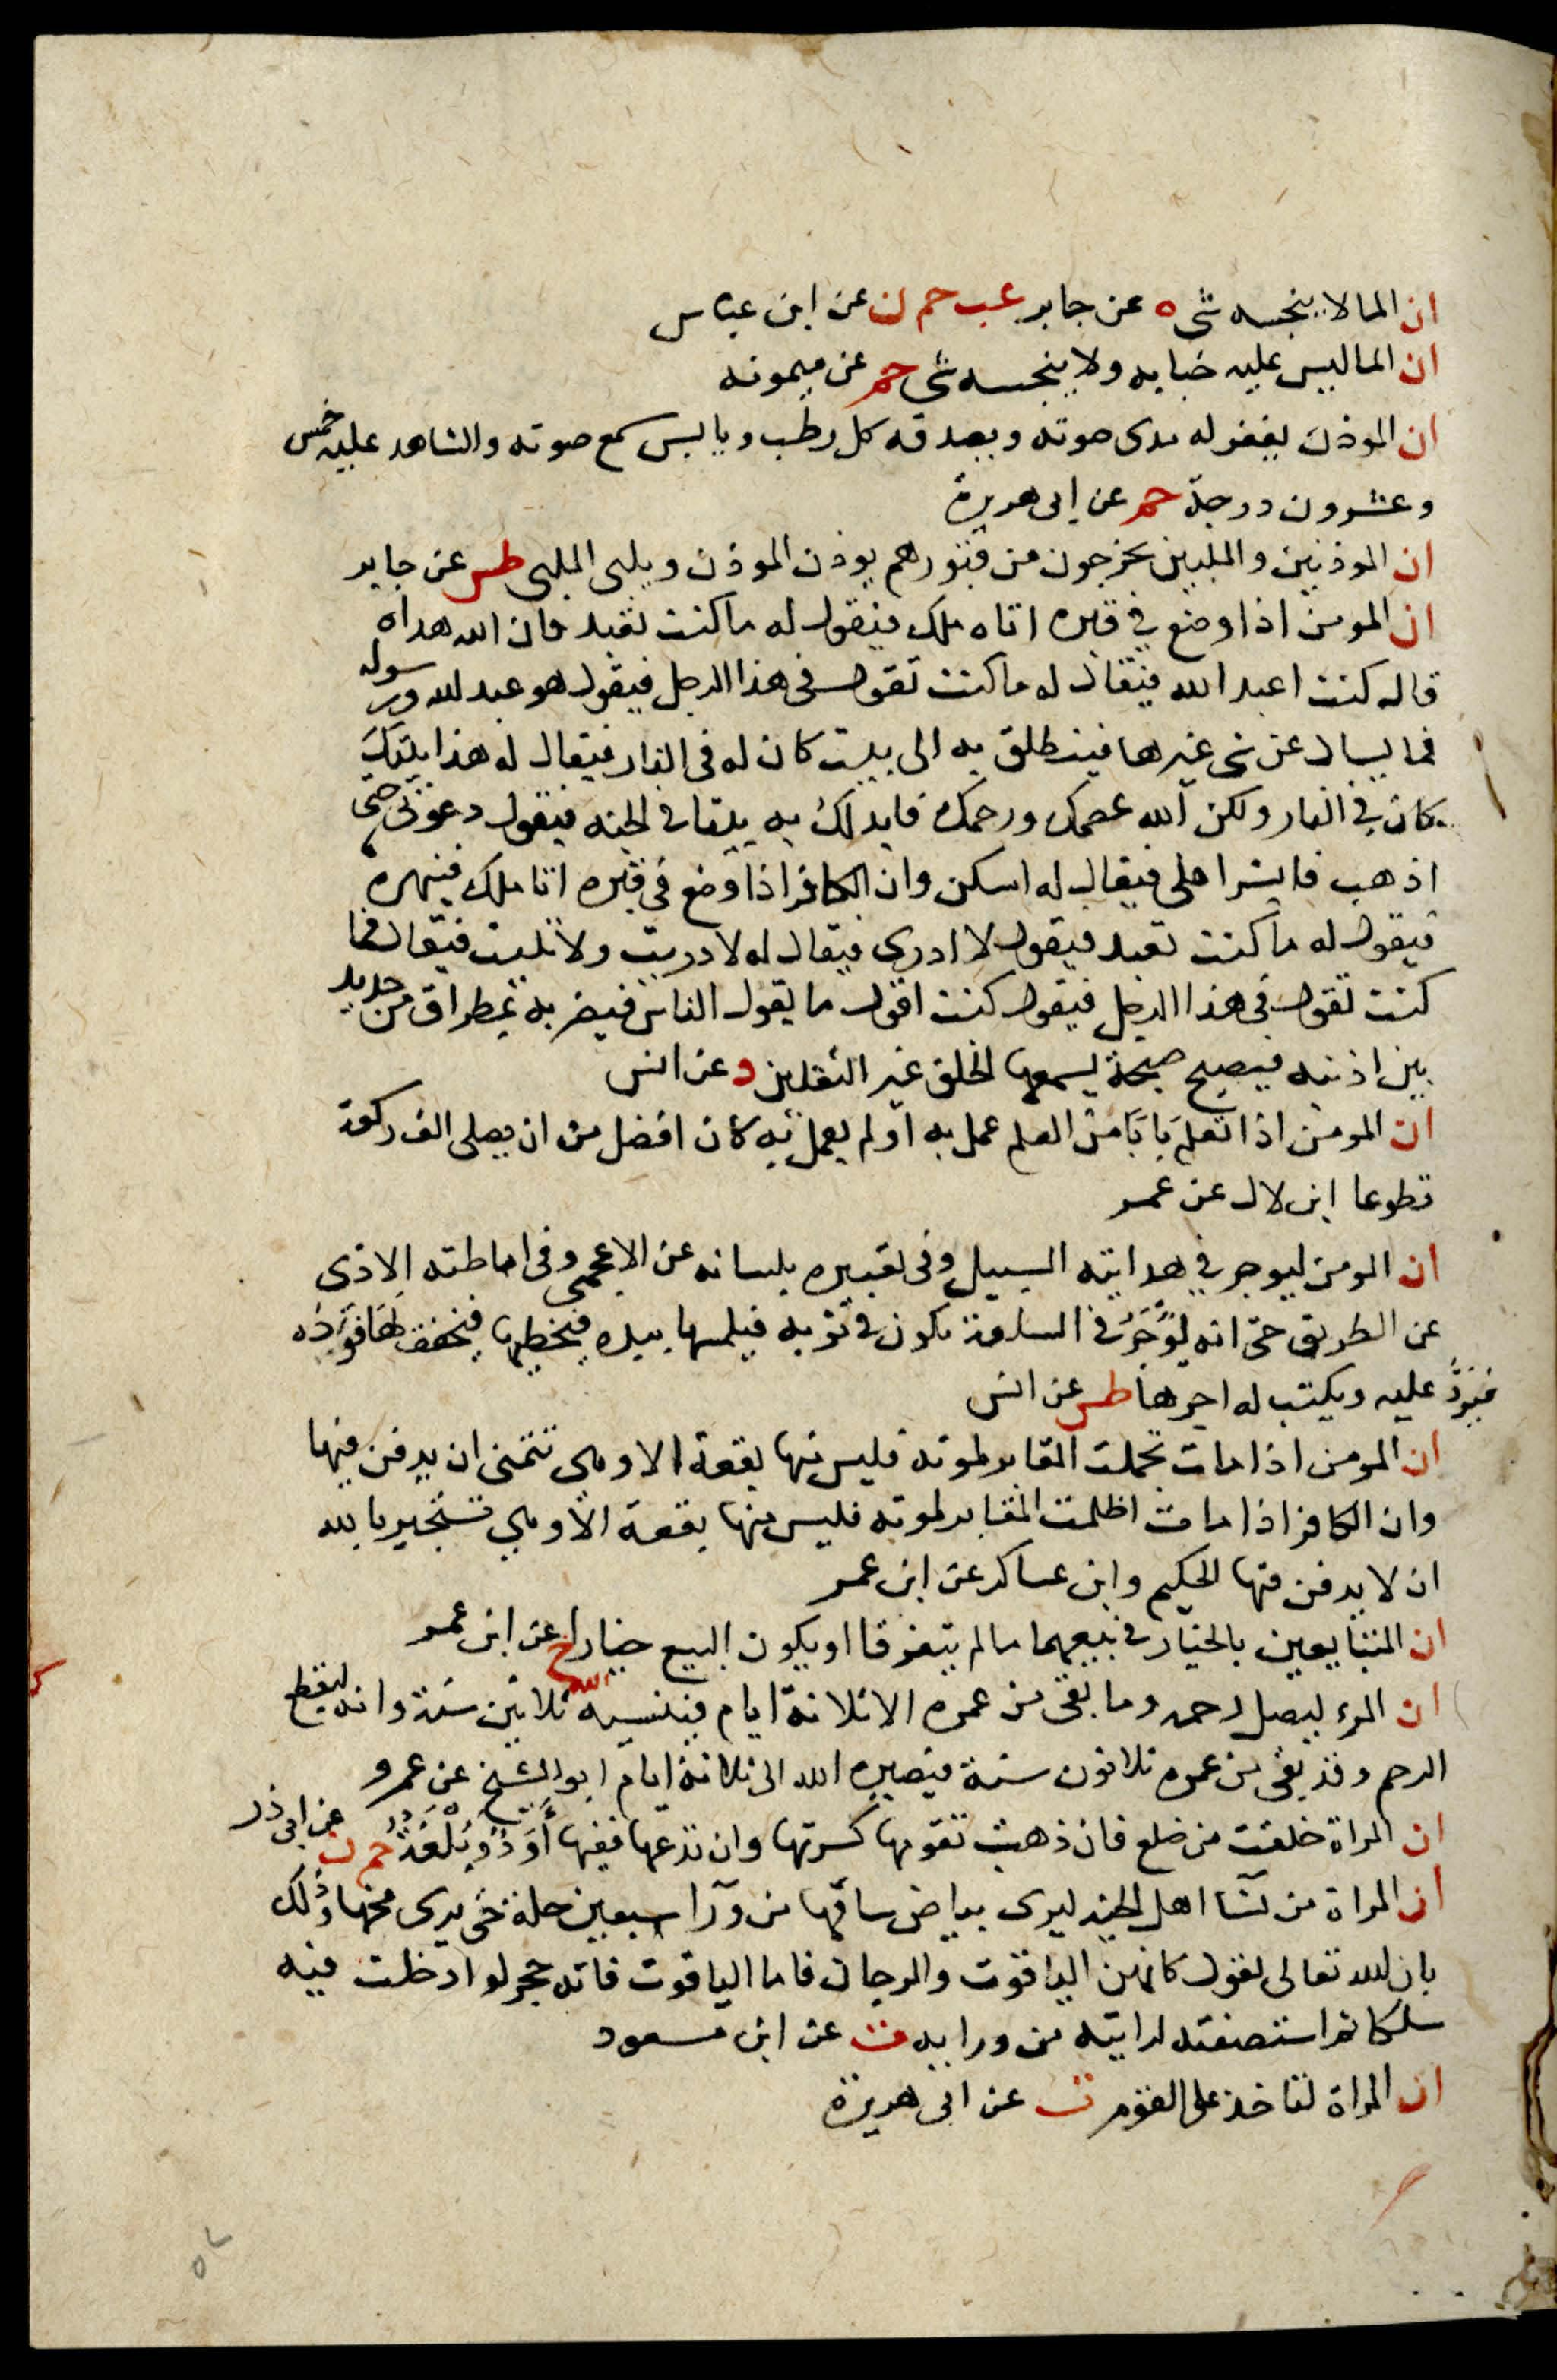 ان الما لا ينجسه شى ه عن جابر عب حم ن عن ابن عباس
ان الما ليس عليه خبايه ولا ينجسه شى حم عن ميمونه
ان الموذن يغفر له مدى صوته ويصدقه كل رطب ويابس سمع صوته والشاهد عليه خمس
وعشرون درجة حم عن ابى هريرة
ان الموذنين والملبين يخرجون من قبورهم يوذن الموذن ويلبى الملبى طس عن جابر
ان المومن اذا وضع في قبره اتاه ملك فيقول له ما كنت تعبد فان الله هداه
قال كنت اعبد الله فيقال له ما كنت تقول فى هذا الرجل فيقول هو عبد الله ورسوله
فما يسال عن شى غيرها فينطلق به الى بيت كان له فى النار فيقال له هذا بيتك
كان في النار ولكن الله عصمك ورحمك فابدلك به بيتا في الجنه فيقول دعونى حتى
اذهب فابشر اهلى فيقال له اسكن وان الكافر اذا وضع فى قبره اتا ملك فينهره
فيقول له ما كنت تعبد فيقول لا ادرى فيقال له لا دريت ولا تليت فيقال فما
كنت تقول فى هذا الرجل فيقول كنت اقول ما يقول الناس فيضربه بمطراق من حديد
بين اذنيه فيصيح صيحة يسمعها الخلق غير الثقلين د عن انس
ان المومن اذا تعلم بابا من العلم عمل به او لم يعمل به كان افضل من ان يصلى الف ركعة
تطوعا ابن لال عن عمر
ان المومن ليوجر في هدايته السبيل وفى تعبيره بلسانه عن الاعجمى وفى اماطته الاذى
عن الطريق حتى انه ليوجر في السلعة تكون في ثوبه فيلمسها بيده فيخطيها فيخفق لها فواده
فيرد عليه ويكتب له اجرها طس عن انس
ان المومن اذا مات تجملت المقابر لموته فليس منها بقعة الا وهى تتمنى ان يدفن فيها
وان الكافر اذا مات اظلمت المقابر لموته فليس منها بقعة الا وهي تستجير بالله
ان لا يدفن فيها الحكيم وابن عساكر عن ابن عمر
ان المتبايعين بالخيار في بيعهما ما لم يتفرقا او يكون البيع خيارا خ عن ابن عمر
ان المرء ليصل رحمه وما بقى من عمره الا ثلاثة ايام فينسيه الله ثلاثين سنة وانه ليقطع
الرحم وقد بقى من عمره ثلاثون سنة فيصيره الله الى ثلاثة ايام ابو الشيخ عن عمرو
ان المراة خلقت من ضلع فان ذهبت تقومها كسرتها وان تدعها ففيها أَوَدٌ وبُلْغَةٌ حم ن عن ابى ذر
ان المراة من نسا اهل الجنه ليرى بياض ساقها من ورآ سبعين حلة حتى يرى مخها وذلك
بان الله تعالى يقول كانهن الياقوت والمرجان فاما الياقوت فانه حجر لو ادخلت فيه
سلكا ثم استصفيته لرايته من ورايه ت عن ابن مسعود
ان المراة لتاخذ على القوم ت عن ابى هريرة